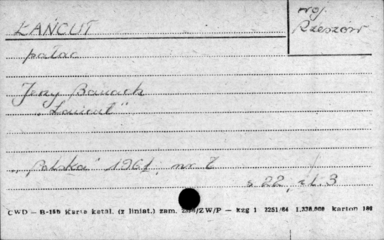 ŁAŃCUT
woj.
Rzeszów
pałac
Jerzy Banach
"Łańcut"
"Polska" 1961, nr 8
s. 22, il. 3
CWD – B-180 Karta katal. (z liniat.) zam. /ZW/P – kzg 1 2251/64 karton